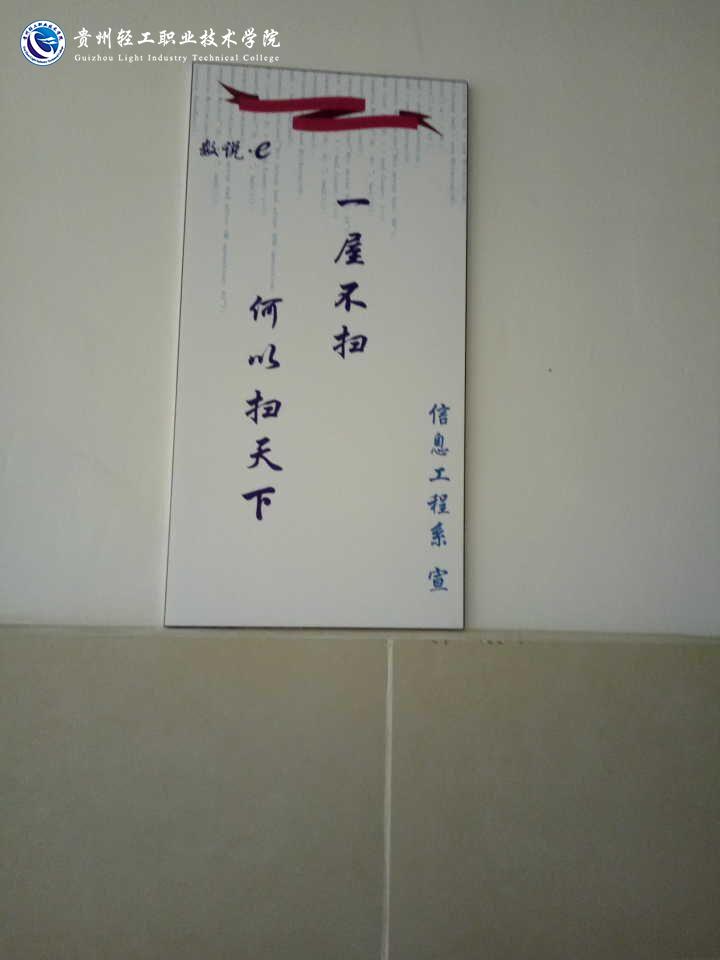 贵州轻工职业技术学院
Guizhou Light Industry Technical College
数说·e
一屋不扫
何以扫天下
信息工程系 宣